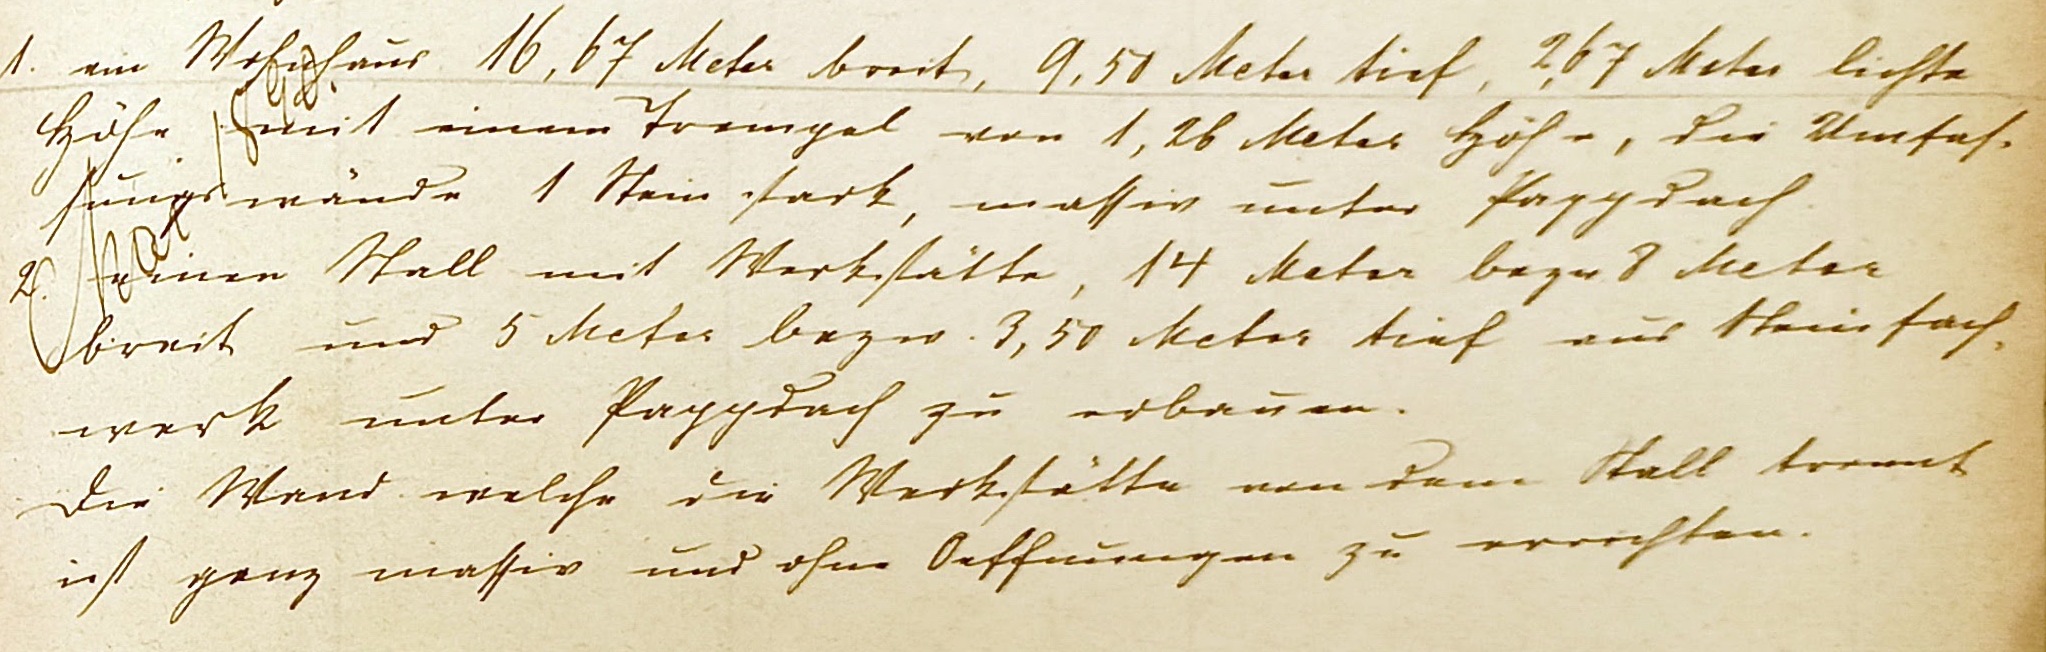 1. ein Wohnhaus 16,67 Meter breit, 9,50 Meter tief, 2,67 Meter lichte
Höhe mit einem Trempel von 1,26 Meter Höhe, die Umfas-
sungswände 1 Stein stark, massiv unter Pappdach
2. einen Stall mit Werkstätte, 14 Meter bezw 8 Meter
breit und 5 Meter bezw. 3,50 Meter tief aus Steinfach-
werk unter Pappdach zu erbauen.
Die Wand welche die Werkstätte von dem Stall trennt
ist ganz massiv und ohne Oeffnungen zu errichten.